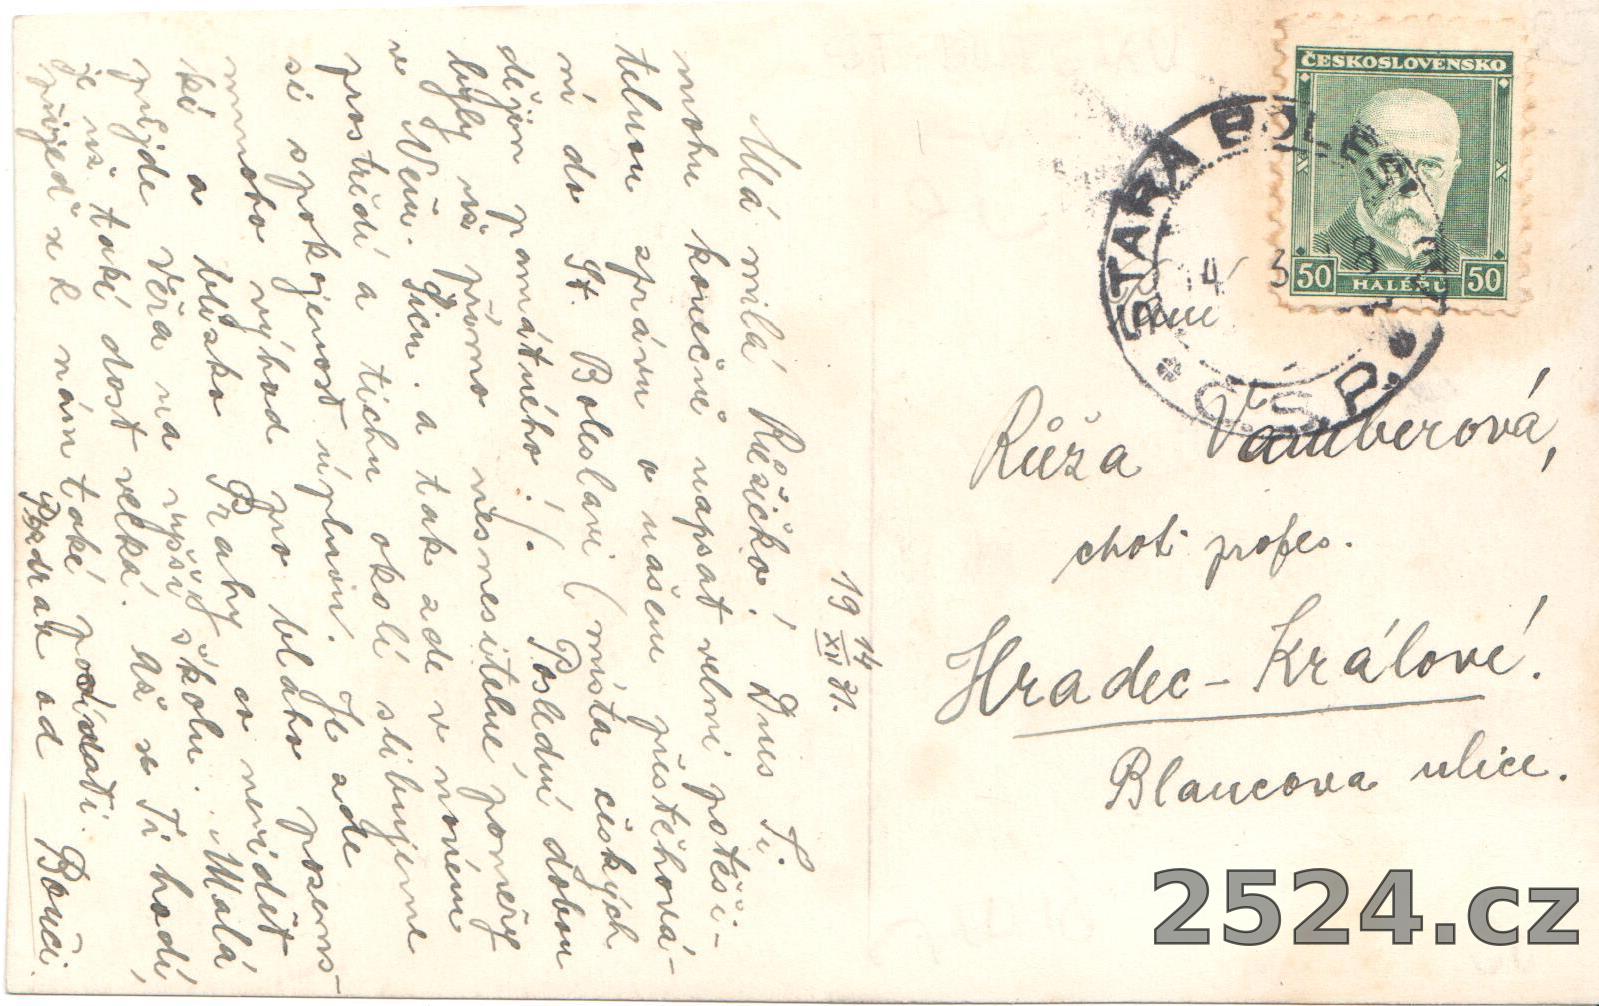 19 14/XII 31.
Má milá Růžičko! Dnes Ti
mohu konečně napsat velmi potěši-
telnou zprávu o našem přestěhová-
ní do St. Boleslavi (místa českých
dějin památného!). Poslední dobou
byly už přímo nesnesitelné poměry
v Něm. a tak zde v novém
prostředí a tichu okolí slibujeme
si spokojenost úplnou. Je zde
mnoho výhod pro blaho pozems-
ké a blízko Prahy co nevidět
přijde Věra na vyšší školu. Malá
je už také dost velká. Až se Ti hodí,
přijeď se k nám také podívati.
Pozdrav od Bouči.
ČESKOSLOVENSKO
50 HALÉŘŮ 50
STARÁ BOLESLAV
Č.S.P.
Paní
Růža Vamberová,
choť profes.
Hradec-Králové.
Blancova ulice.
2524.cz